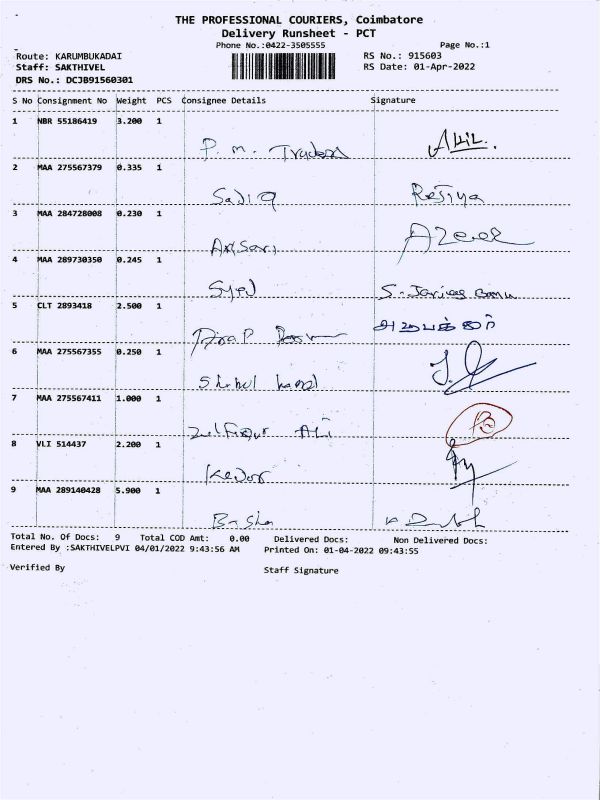 THE PROFESSIONAL COURIERS, Coimbatore
Delivery Runsheet - PCT
Phone No.:0422-3505555 Page No.:1
Route: KARUMBUKADAI RS No.: 915603
Staff: SAKTHIVEL RS Date: 01-Apr-2022
DRS No.: DCJB91560301
S No Consignment No Weight PCS Consignee Details Signature
1 NBR 55186419 3.200 1
P. M. Traders
2 MAA 275567379 0.335 1
Sadiq Rejiya
3 MAA 284728008 0.230 1
Ansari
4 MAA 289730350 0.245 1
Syed
5 CLT 2893418 2.500 1
6 MAA 275567355 0.250 1
7 MAA 275567411 1.000 1
Zulfiqur Ali
8 VLI 514437 2.200 1
9 MAA 289140428 5.900 1
Basha
Total No. Of Docs: 9 Total COD Amt: 0.00 Delivered Docs: Non Delivered Docs:
Entered By :SAKTHIVELPVI 04/01/2022 9:43:56 AM Printed On: 01-04-2022 09:43:55
Verified By Staff Signature